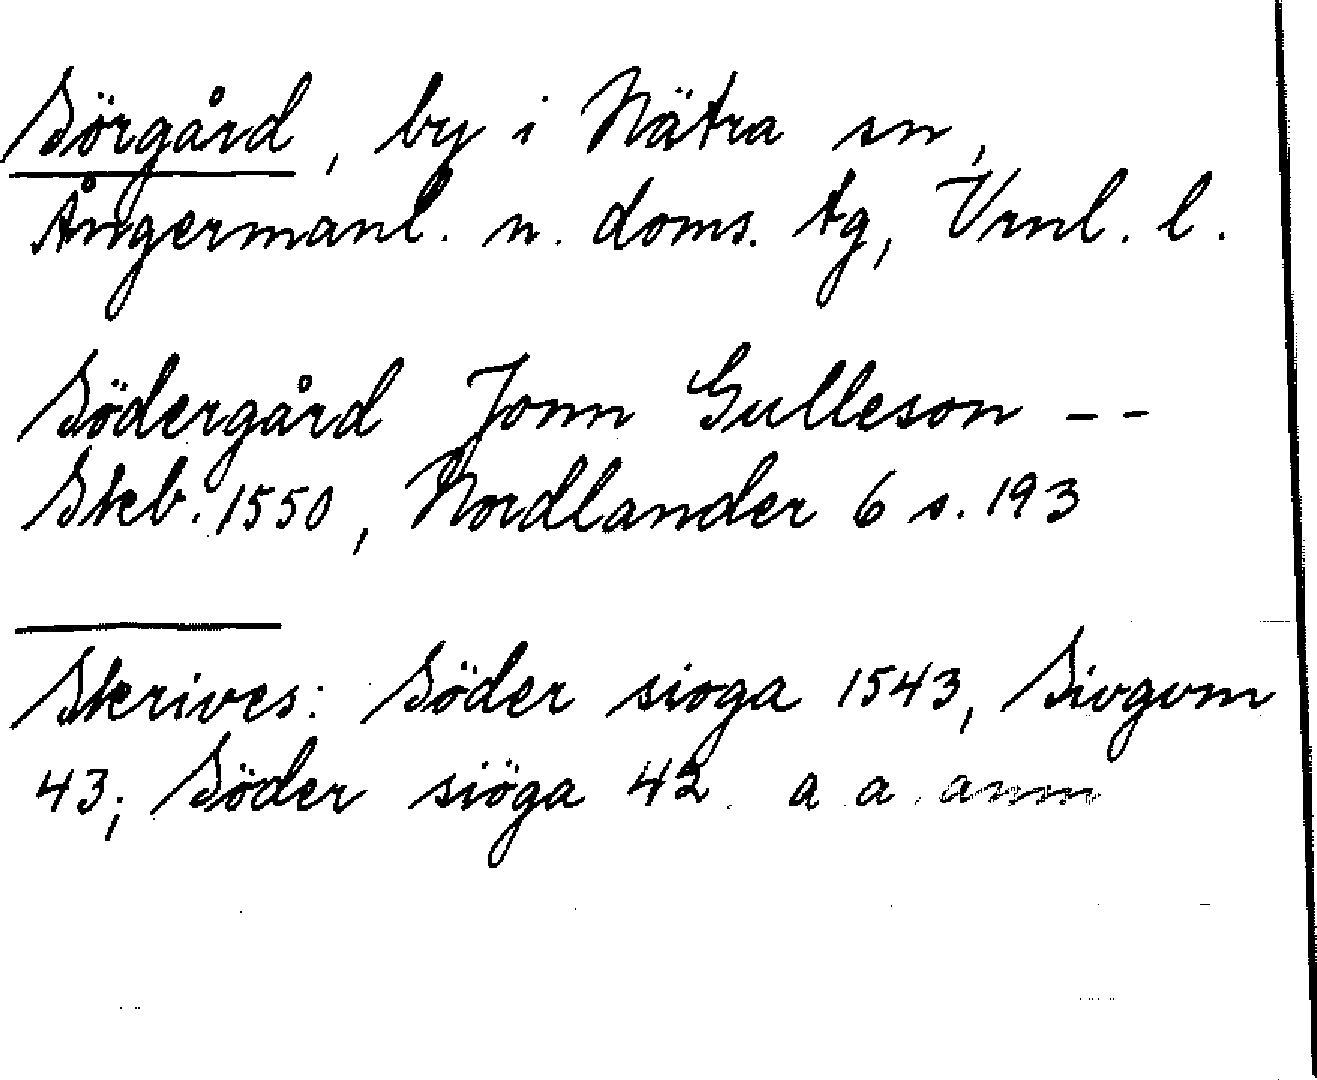 Sörgård, by i Nätra sn,
Ångermanl. n. doms. tg, Vrnl. l.
Södergård Jonn Gulleson --
Skb. 1550, Nordlander 6 s. 193
Skrives: Söder sioga 1543, Sivgvm
43; Söder siöga 42. a a. anm